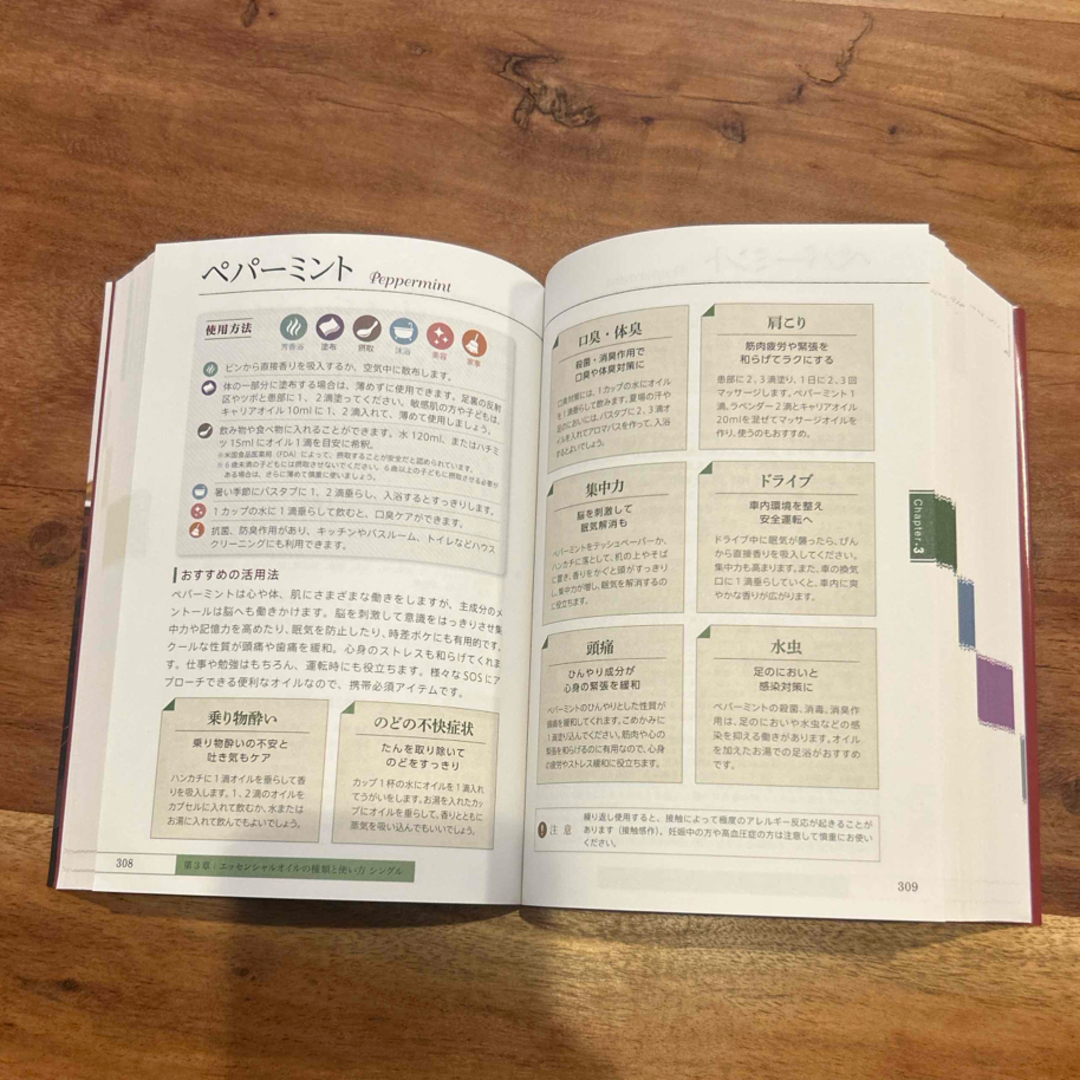 ペパーミント Peppermint
使用方法
芳香浴 塗布 摂取 沐浴 美容 家事
ビンから直接香りを吸入するか、空気中に散布します。
体の一部分に塗布する場合は、薄めずに使用できます。足裏の反射
区やツボと患部に1、2滴塗ってください。敏感肌の方や子どもは、
キャリアオイル10mlに1、2滴入れて、薄めて使用しましょう。
飲み物や食べ物に入れることができます。水120ml、またはハチミ
ツ15mlにオイル1滴を目安に希釈。
※米国食品医薬局(FDA)によって、摂取することが安全だと認められています。
※6歳未満の子どもには摂取させないでください。6歳以上の子どもに摂取させる必要が
ある場合は、さらに薄めて慎重に使いましょう。
暑い季節にバスタブに1、2滴垂らし、入浴するとすっきりします。
1カップの水に1滴垂らして飲むと、口臭ケアができます。
抗菌、防臭作用があり、キッチンやバスルーム、トイレなどハウス
クリーニングにも利用できます。
おすすめの活用法
ペパーミントは心や体、肌にさまざまな働きをしますが、主成分のメ
ントールは脳へも働きかけます。脳を刺激して意識をはっきりさせ集
中力や記憶力を高めたり、眠気を防止したり、時差ボケにも有用的です。
クールな性質が頭痛や歯痛を緩和。心身のストレスも和らげてくれま
す。仕事や勉強はもちろん、運転時にも役立ちます。様々なSOSにア
プローチできる便利なオイルなので、携帯必須アイテムです。
乗り物酔い
乗り物酔いの不安と
吐き気もケア
ハンカチに1滴オイルを垂らして香
りを吸入します。1、2滴のオイルを
カプセルに入れて飲むか、水または
お湯に入れて飲んでもよいでしょう。
のどの不快症状
たんを取り除いて
のどをすっきり
カップ1杯の水にオイルを1滴入れ
てうがいをします。お湯を入れたカッ
プにオイルを垂らして、香りとともに
蒸気を吸い込んでもいいでしょう。
308
第3章:エッセンシャルオイルの種類と使い方 シングル
口臭・体臭
殺菌・消臭作用で
口臭や体臭対策に
口臭対策には、1カップの水にオイル
を1滴垂らして飲みます。夏場の汗や
足のにおいには、バスタブに2、3滴オ
イルを入れてアロマバスを作って、入浴
するとよいでしょう。
肩こり
筋肉疲労や緊張を
和らげてラクにする
患部に2、3滴塗り、1日に2、3回
マッサージします。ペパーミント1
滴、ラベンダー2滴とキャリアオイル
20mlを混ぜてマッサージオイルを
作り、使うのもおすすめ。
集中力
脳を刺激して
眠気解消も
ペパーミントをテッシュペーパーか、
ハンカチに落として、机の上やそば
に置き、香りをかぐと頭がすっきり
し、集中力が増し、眠気を解消するの
に役立ちます。
ドライブ
車内環境を整え
安全運転へ
ドライブ中に眠気が襲ったら、びん
から直接香りを吸入してください。
集中力も高まります。また、車の換気
口に1滴垂らしていくと、車内に爽
やかな香りが広がります。
頭痛
ひんやり成分が
心身の緊張を緩和
ペパーミントのひんやりとした性質が
頭痛を緩和してくれます。こめかみに
1滴塗り込んでください。筋肉や心の
緊張を和らげるのに有用なので、心身
の疲労やストレス緩和に役立ちます。
水虫
足のにおいと
感染対策に
ペパーミントの殺菌、消毒、消臭作
用は、足のにおいや水虫などの感
染を抑える働きがあります。オイル
を加えたお湯での足浴がおすすめ
です。
注意
繰り返し使用すると、接触によって極度のアレルギー反応が起きることが
あります(接触感作)。妊娠中の方や高血圧症の方は注意して慎重にお使い
ください。
309
Chapter.3